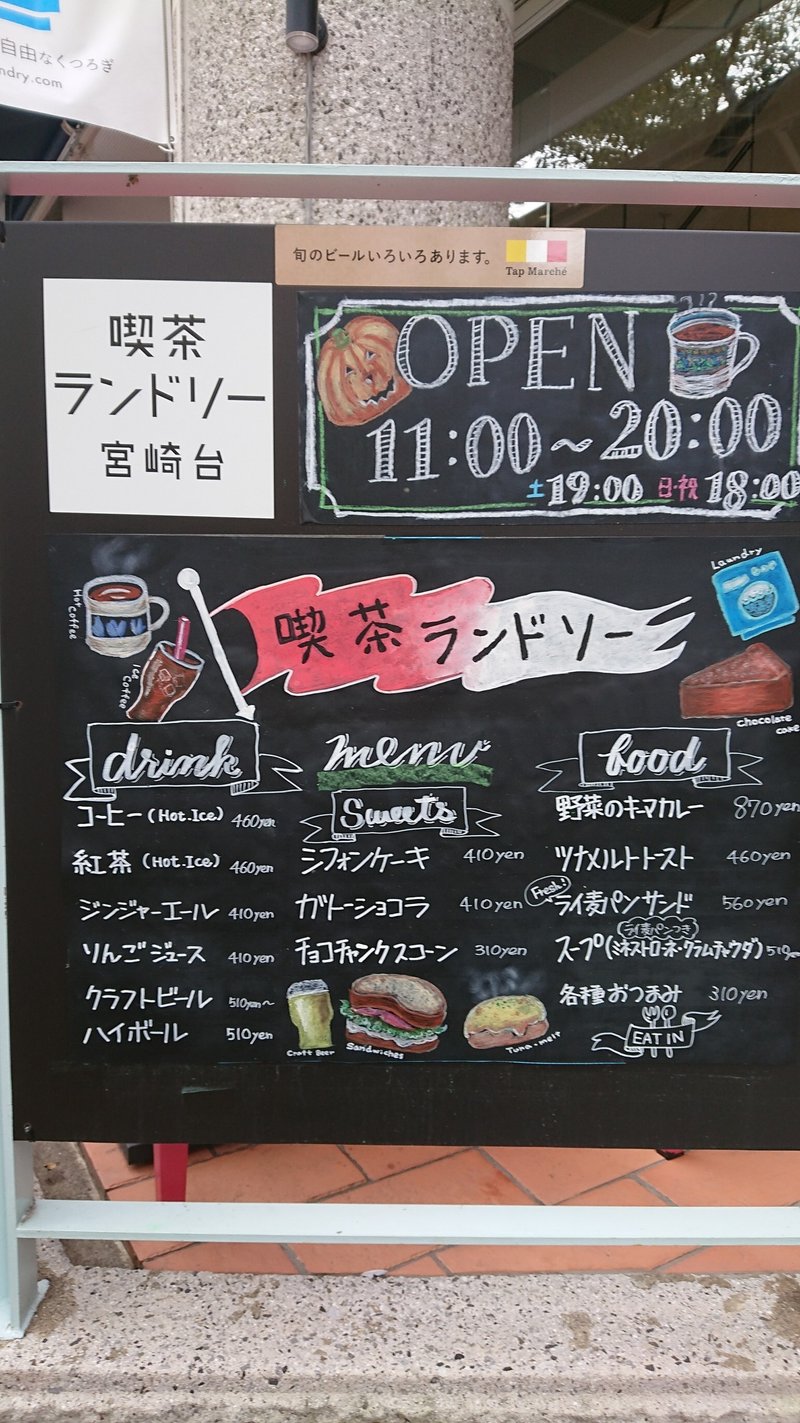 自由なくつろぎ
ndry.com
旬のビールいろいろあります。
Tap Marché
喫茶
ランドリー
宮崎台
OPEN
11:00～20:00
土19:00 日・祝18:00
Hot Coffee
Ice Coffee
喫茶ランドリー
Laundry
Chocolate cake
drink
コーヒー (Hot.Ice) 460yen
紅茶 (Hot.Ice) 460yen
ジンジャーエール 410yen
りんごジュース 410yen
クラフトビール 510yen～
ハイボール 510yen
menu
Sweets
シフォンケーキ 410yen
ガトーショコラ 410yen
チョコチャンクスコーン 310yen
Craft Beer
Sandwiches
Tuna-melt
food
野菜のキーマカレー 870yen
ツナメルトトースト 460yen
Fresh!
ライ麦パンサンド 560yen
ライ麦パンつき
スープ(ミネストローネ・クラムチャウダー) 510yen
各種おつまみ 310yen
EAT IN